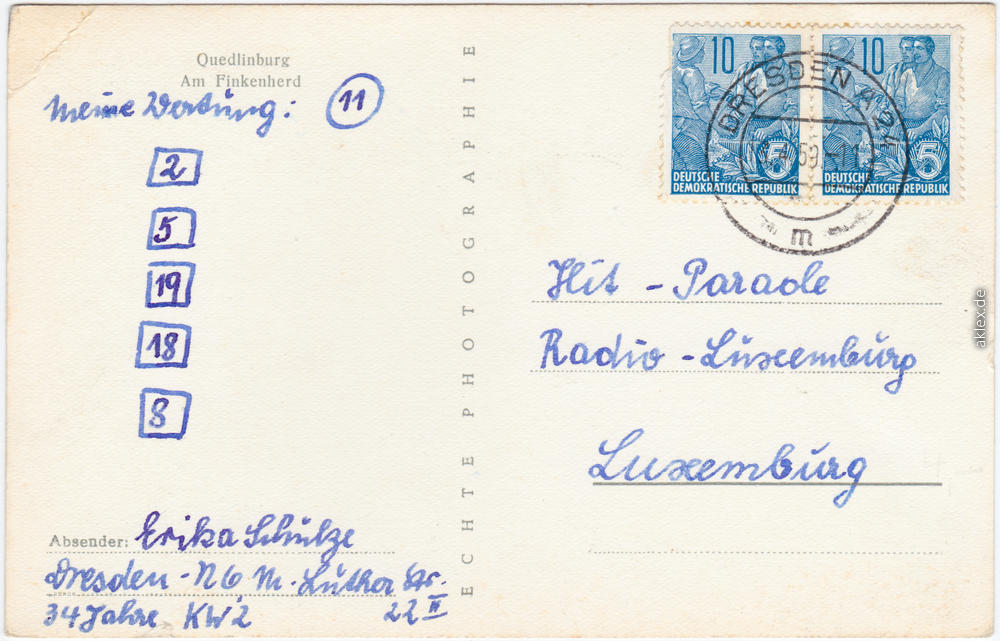 Quedlinburg
Am Finkenherd
Meine Wertung: 11
2
5
19
18
8
Absender: Erika Schulze
Dresden - N6 M. Luther Str.
22 II
34 Jahre KW2
ECHTE PHOTOGRAPHIE
10 10
5 5
DEUTSCHE DEUTSCHE
DEMOKRATISCHE REPUBLIK DEMOKRATISCHE REPUBLIK
DRESDEN A
m
Hit - Parade
Radio - Luxemburg
Luxemburg
aklex.de